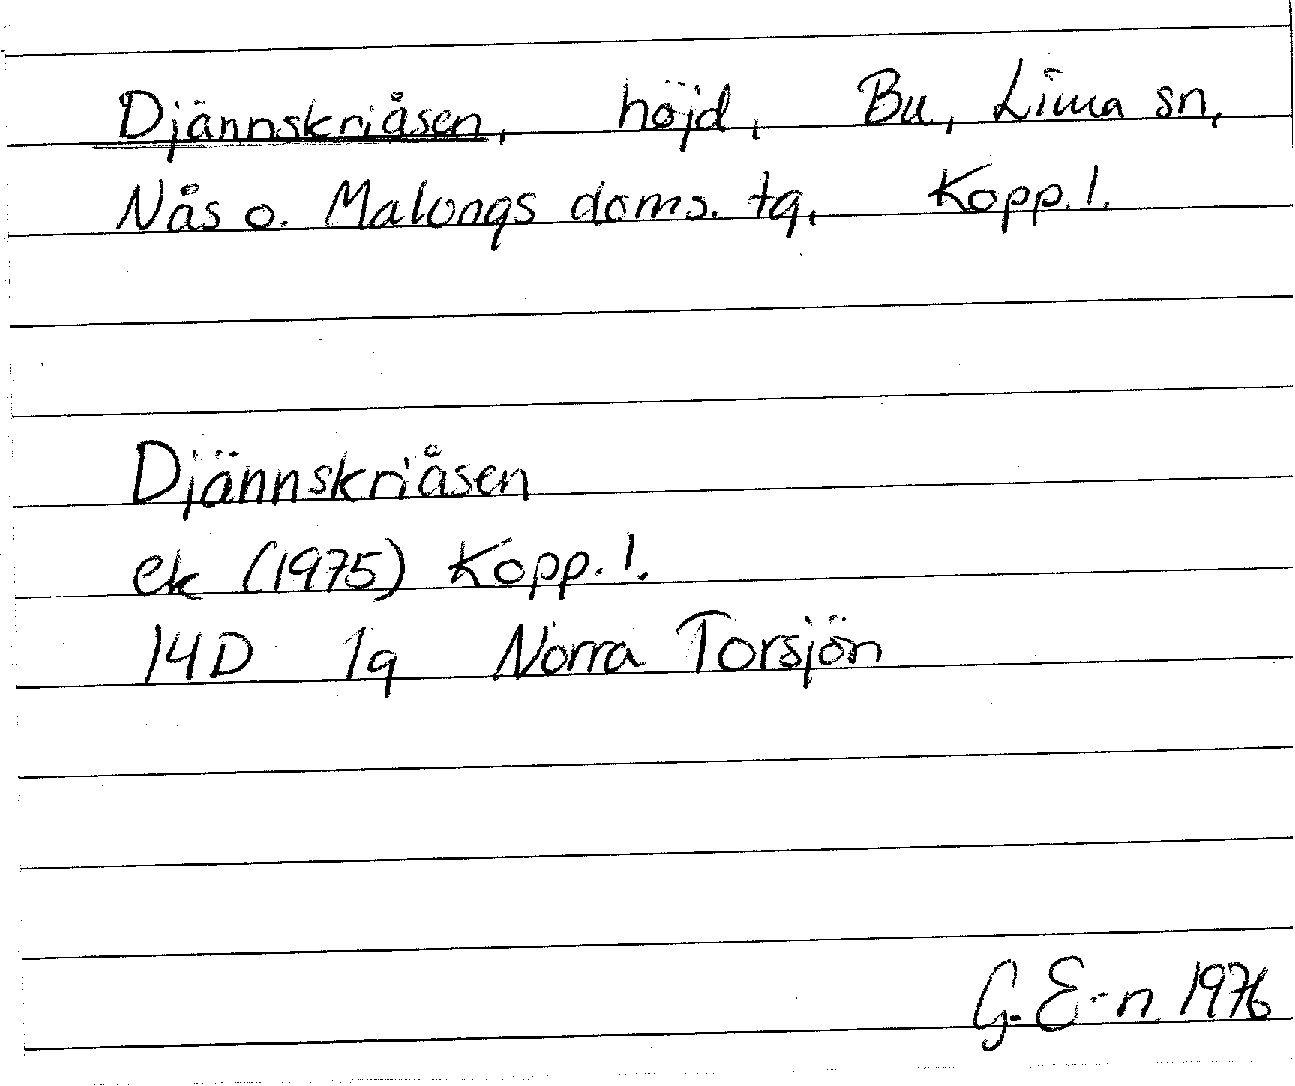 Djännskriåsen, höjd, Bu, Lima sn,
Nås o. Malungs doms. tg, Kopp. l.
Djännskriåsen
ek (1975) Kopp. l.
14D 1g Norra Torsjön
G. E-n 1976